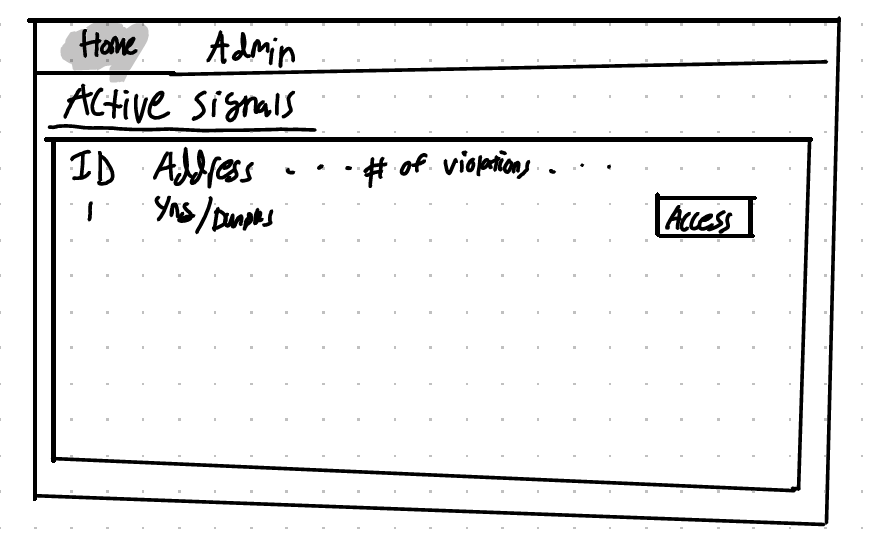 Home Admin
Active signals
ID Address . . . # of violations . . .
1 Yns/Dunplas Access